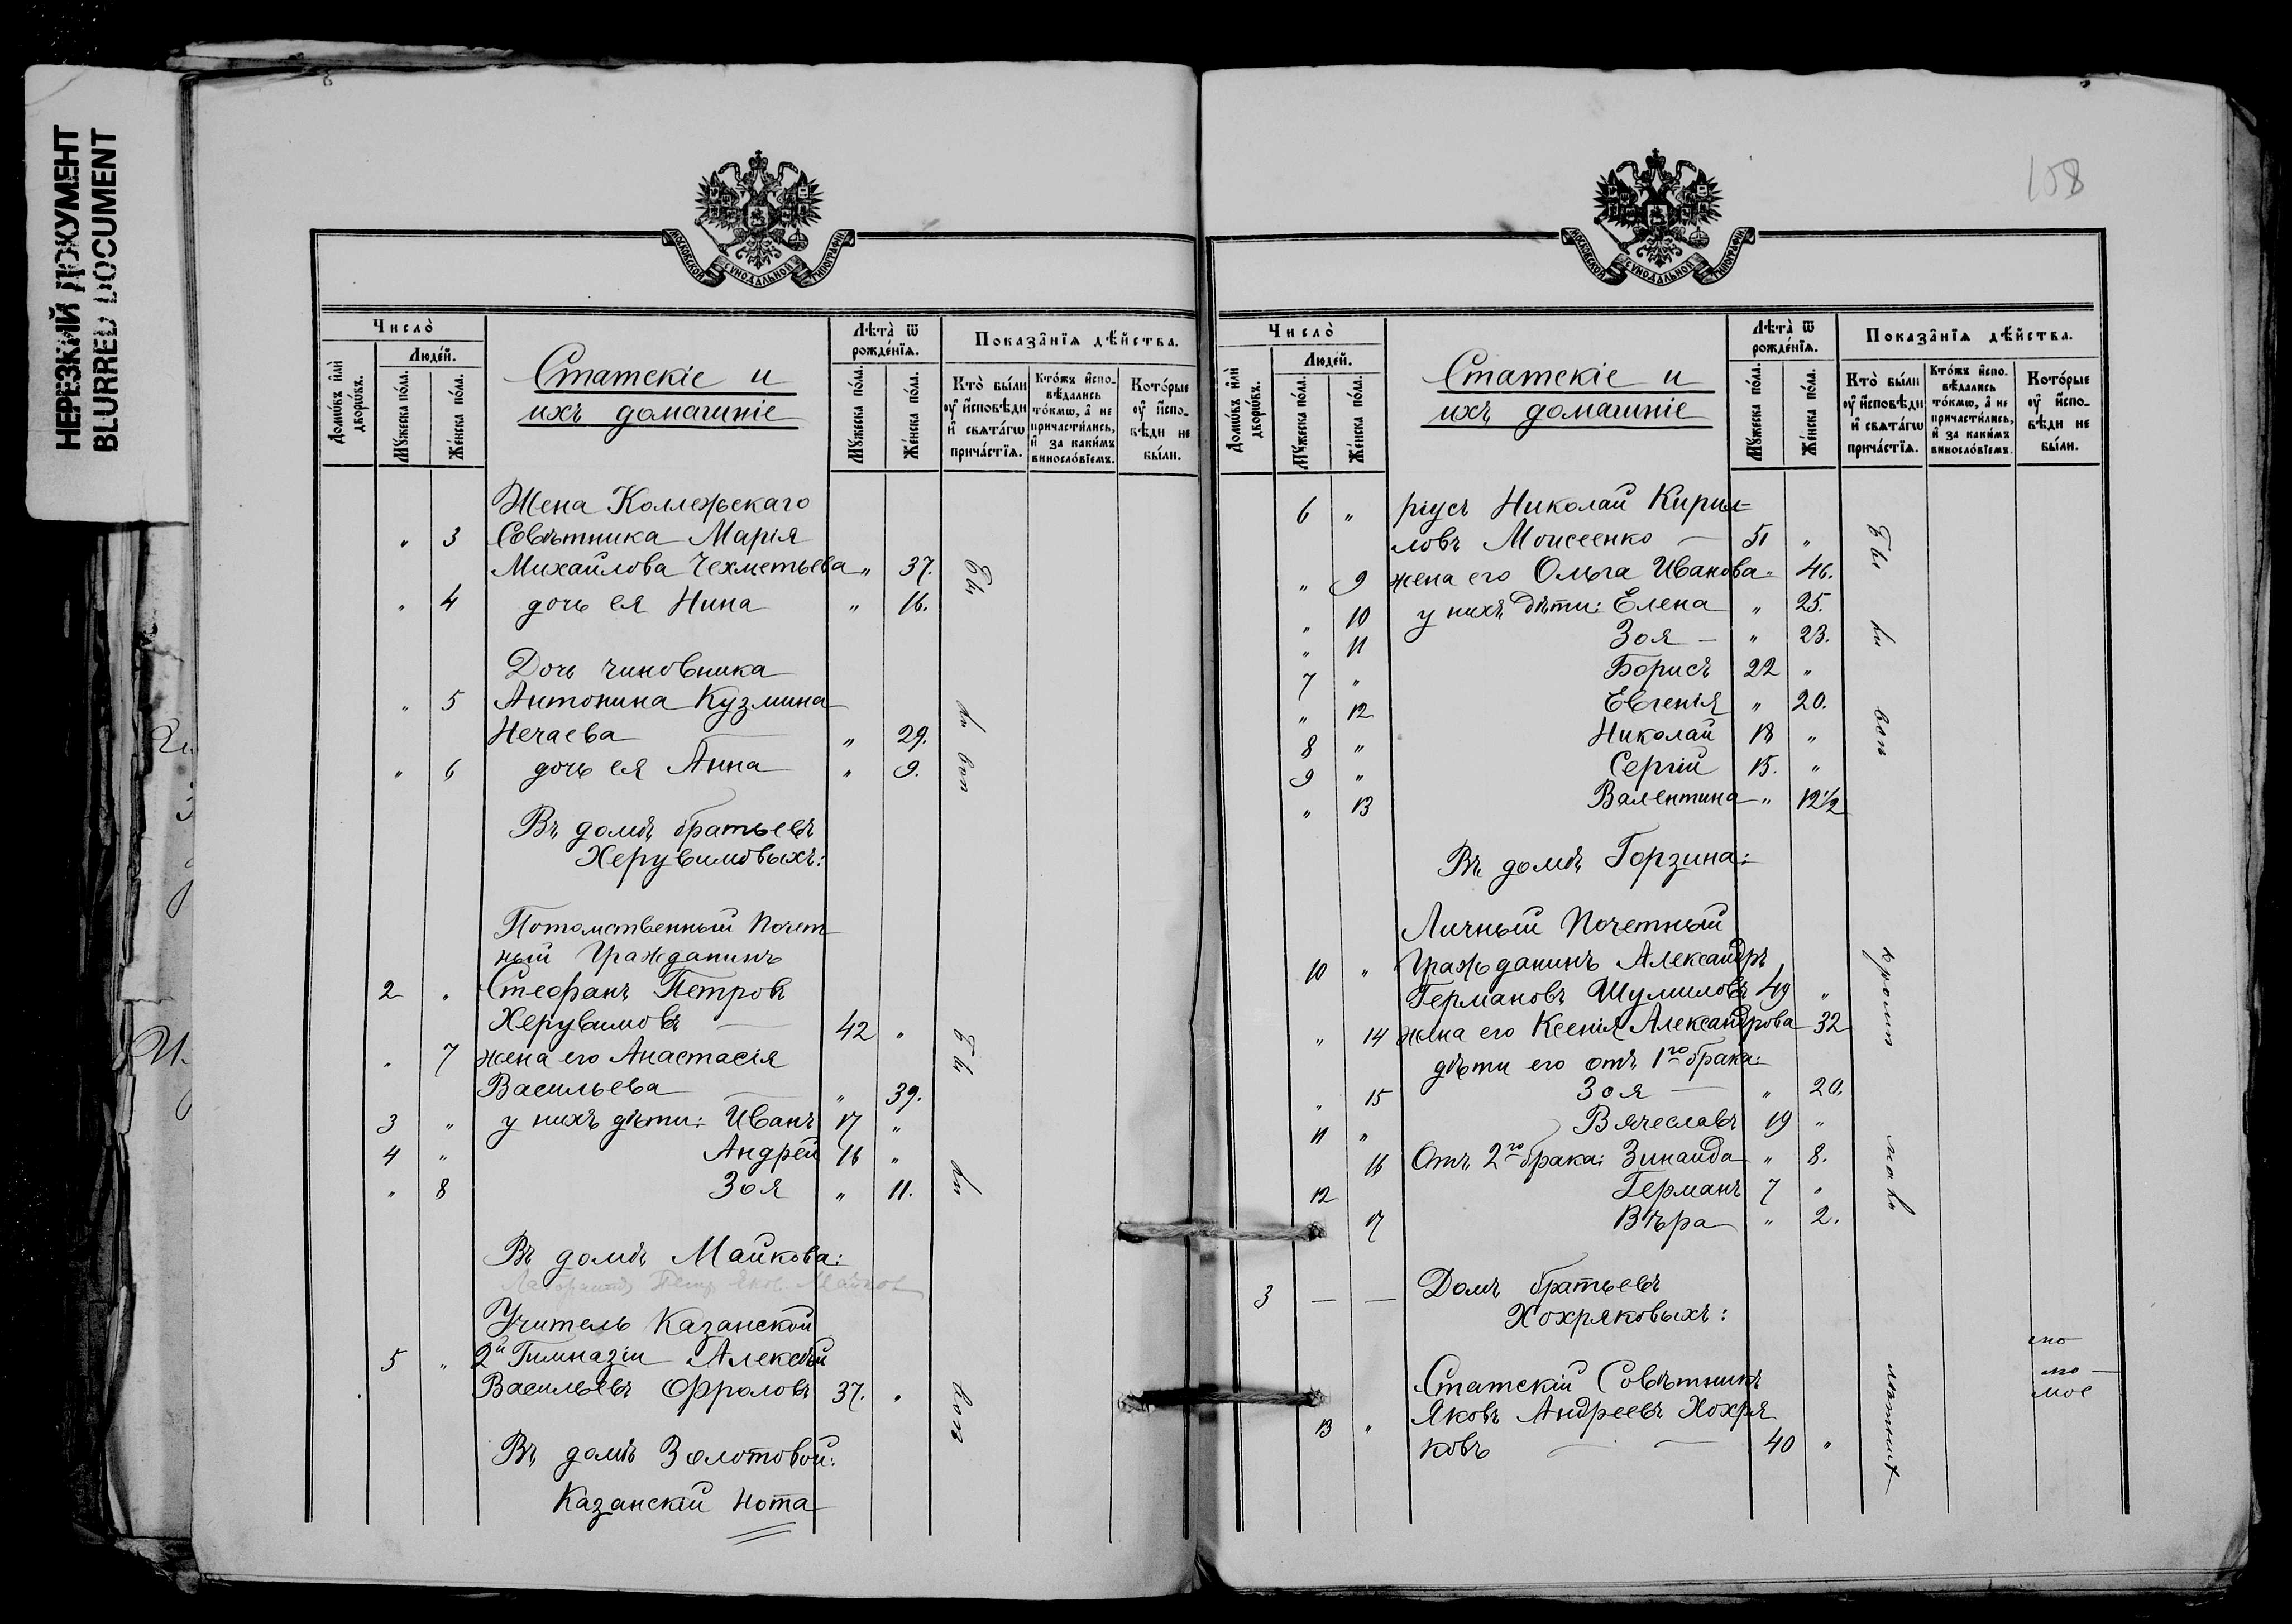 НЕРЕЗКИЙ ДОКУМЕНТ
BLURRED DOCUMENT
МОСКОВСКОЙ СУНОДАЛЬНОЙ ТИПОГРАФІИ
Число̀
Людéй.
Домѡ́въ и҆лѝ дворѡ́въ.
Мꙋ́жеска по́ла.
Же́нска по́ла.
Статскіе и
ихъ домашніе
Лѣта̀ ѿ рожде́нїѧ.
Мꙋ́жеска по́ла.
Же́нска по́ла.
Показа̂нїѧ дѣ́йства.
Кто̀ бы́ли ᲂу҆ и҆сповѣди и҆ свѧта́гѡ прича́стїѧ.
Кто́жъ и҆спо- вѣдались то́кмѡ, а҆ не причасти́лись, и҆ за каки́мъ виносло́вїемъ.
Кото́рые ᲂу҆ и҆спо- вѣди не бы́ли.
Жена Коллежскаго
„ 3 Совѣтника Марія
Михайлова Чехметьева „ 37.
„ 4 дочь ея Нина „ 16.
Дочь чиновника
„ 5 Антонина Кузмина
Нечаева „ 29.
„ 6 дочь ея Анна „ 9.
Въ домѣ братьевъ
Херувимовыхъ:
Потомственный Почет
ный Гражданинъ
2 „ Стефанъ Петровъ
Херувимовъ 42 „
„ 7 жена его Анастасія
Васильева „ 39.
3 „ у нихъ дѣти: Иванъ 17 „
4 „ Андрей 16 „
„ 8 Зоя „ 11.
Въ домѣ Майкова:
Учитель Казанской
5 „ 2й Гимназіи Алексѣй
Васильевъ Фроловъ 37. „
Въ домѣ Золотовой:
Казанскій Нота
158
МОСКОВСКОЙ СУНОДАЛЬНОЙ ТИПОГРАФІИ
Число̀
Людéй.
Домѡ́въ и҆лѝ дворѡ́въ.
Мꙋ́жеска по́ла.
Же́нска по́ла.
Статскіе и
ихъ домашніе
Лѣта̀ ѿ рожде́нїѧ.
Мꙋ́жеска по́ла.
Же́нска по́ла.
Показа̂нїѧ дѣ́йства.
Кто̀ бы́ли ᲂу҆ и҆сповѣди и҆ свѧта́гѡ прича́стїѧ.
Кто́жъ и҆спо- вѣдались то́кмѡ, а҆ не причасти́лись, и҆ за каки́мъ виносло́вїемъ.
Кото́рые ᲂу҆ и҆спо- вѣди не бы́ли.
6 „ ріусъ Николай Кирил=
ловъ Моисеенко — 51 „
„ 9 жена его Ольга Иванова „ 46.
„ 10 у нихъ дѣти: Елена „ 25.
„ 11 Зоя — „ 23.
7 „ Борисъ 22 „
„ 12 Евгенія „ 20.
8 „ Николай 18 „
9 „ Сергій 15. „
„ 13 Валентина „ 12½
Въ домѣ Горзина:
Личный Почетный
10 „ Гражданинъ Александръ
Германовъ Шумиловъ 49 „
„ 14 жена его Ксенія Александрова 32
дѣти его отъ 1го брака:
„ 15 Зоя — „ 20.
11 „ Вячеславъ 19 „
16 Отъ 2го брака: Зинаида „ 8.
12 Германъ 7 „
17 Вѣра „ 2.
3 — — Домъ братьевъ
Хохряковыхъ:
Статскій Совѣтникъ
13 „ Яковъ Андреевъ Хохря
ковъ — — 40 „